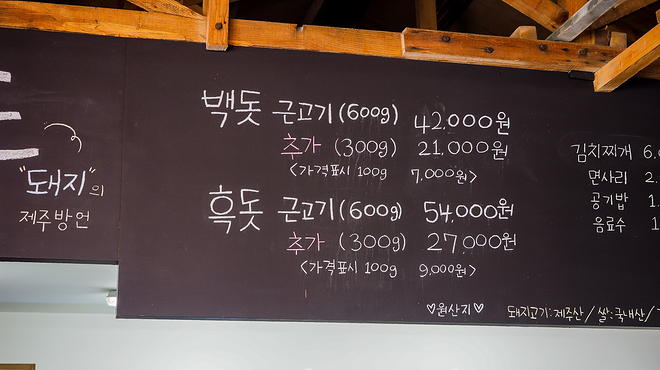 "돼지"의
제주방언
백돗 근고기(600g) 42,000원
추가 (300g) 21,000원
<가격표시 100g 7,000원>
흑돗 근고기(600g) 54,000원
추가 (300g) 27,000원
<가격표시 100g 9,000원>
김치찌개 6.
면사리 2.
공기밥 1.
음료수 1
♡원산지♡ 돼지고기:제주산/쌀:국내산/